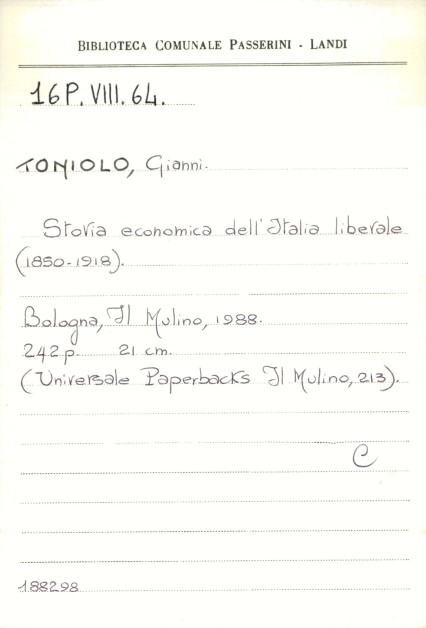 BIBLIOTECA COMUNALE PASSERINI - LANDI
16P. VIII. 64.
TONIOLO, Gianni.
Storia economica dell'Italia liberale
(1850-1918).
Bologna, Il Mulino, 1988.
242 p. 21 cm.
(Universale Paperbacks Il Mulino, 213).
C
188298